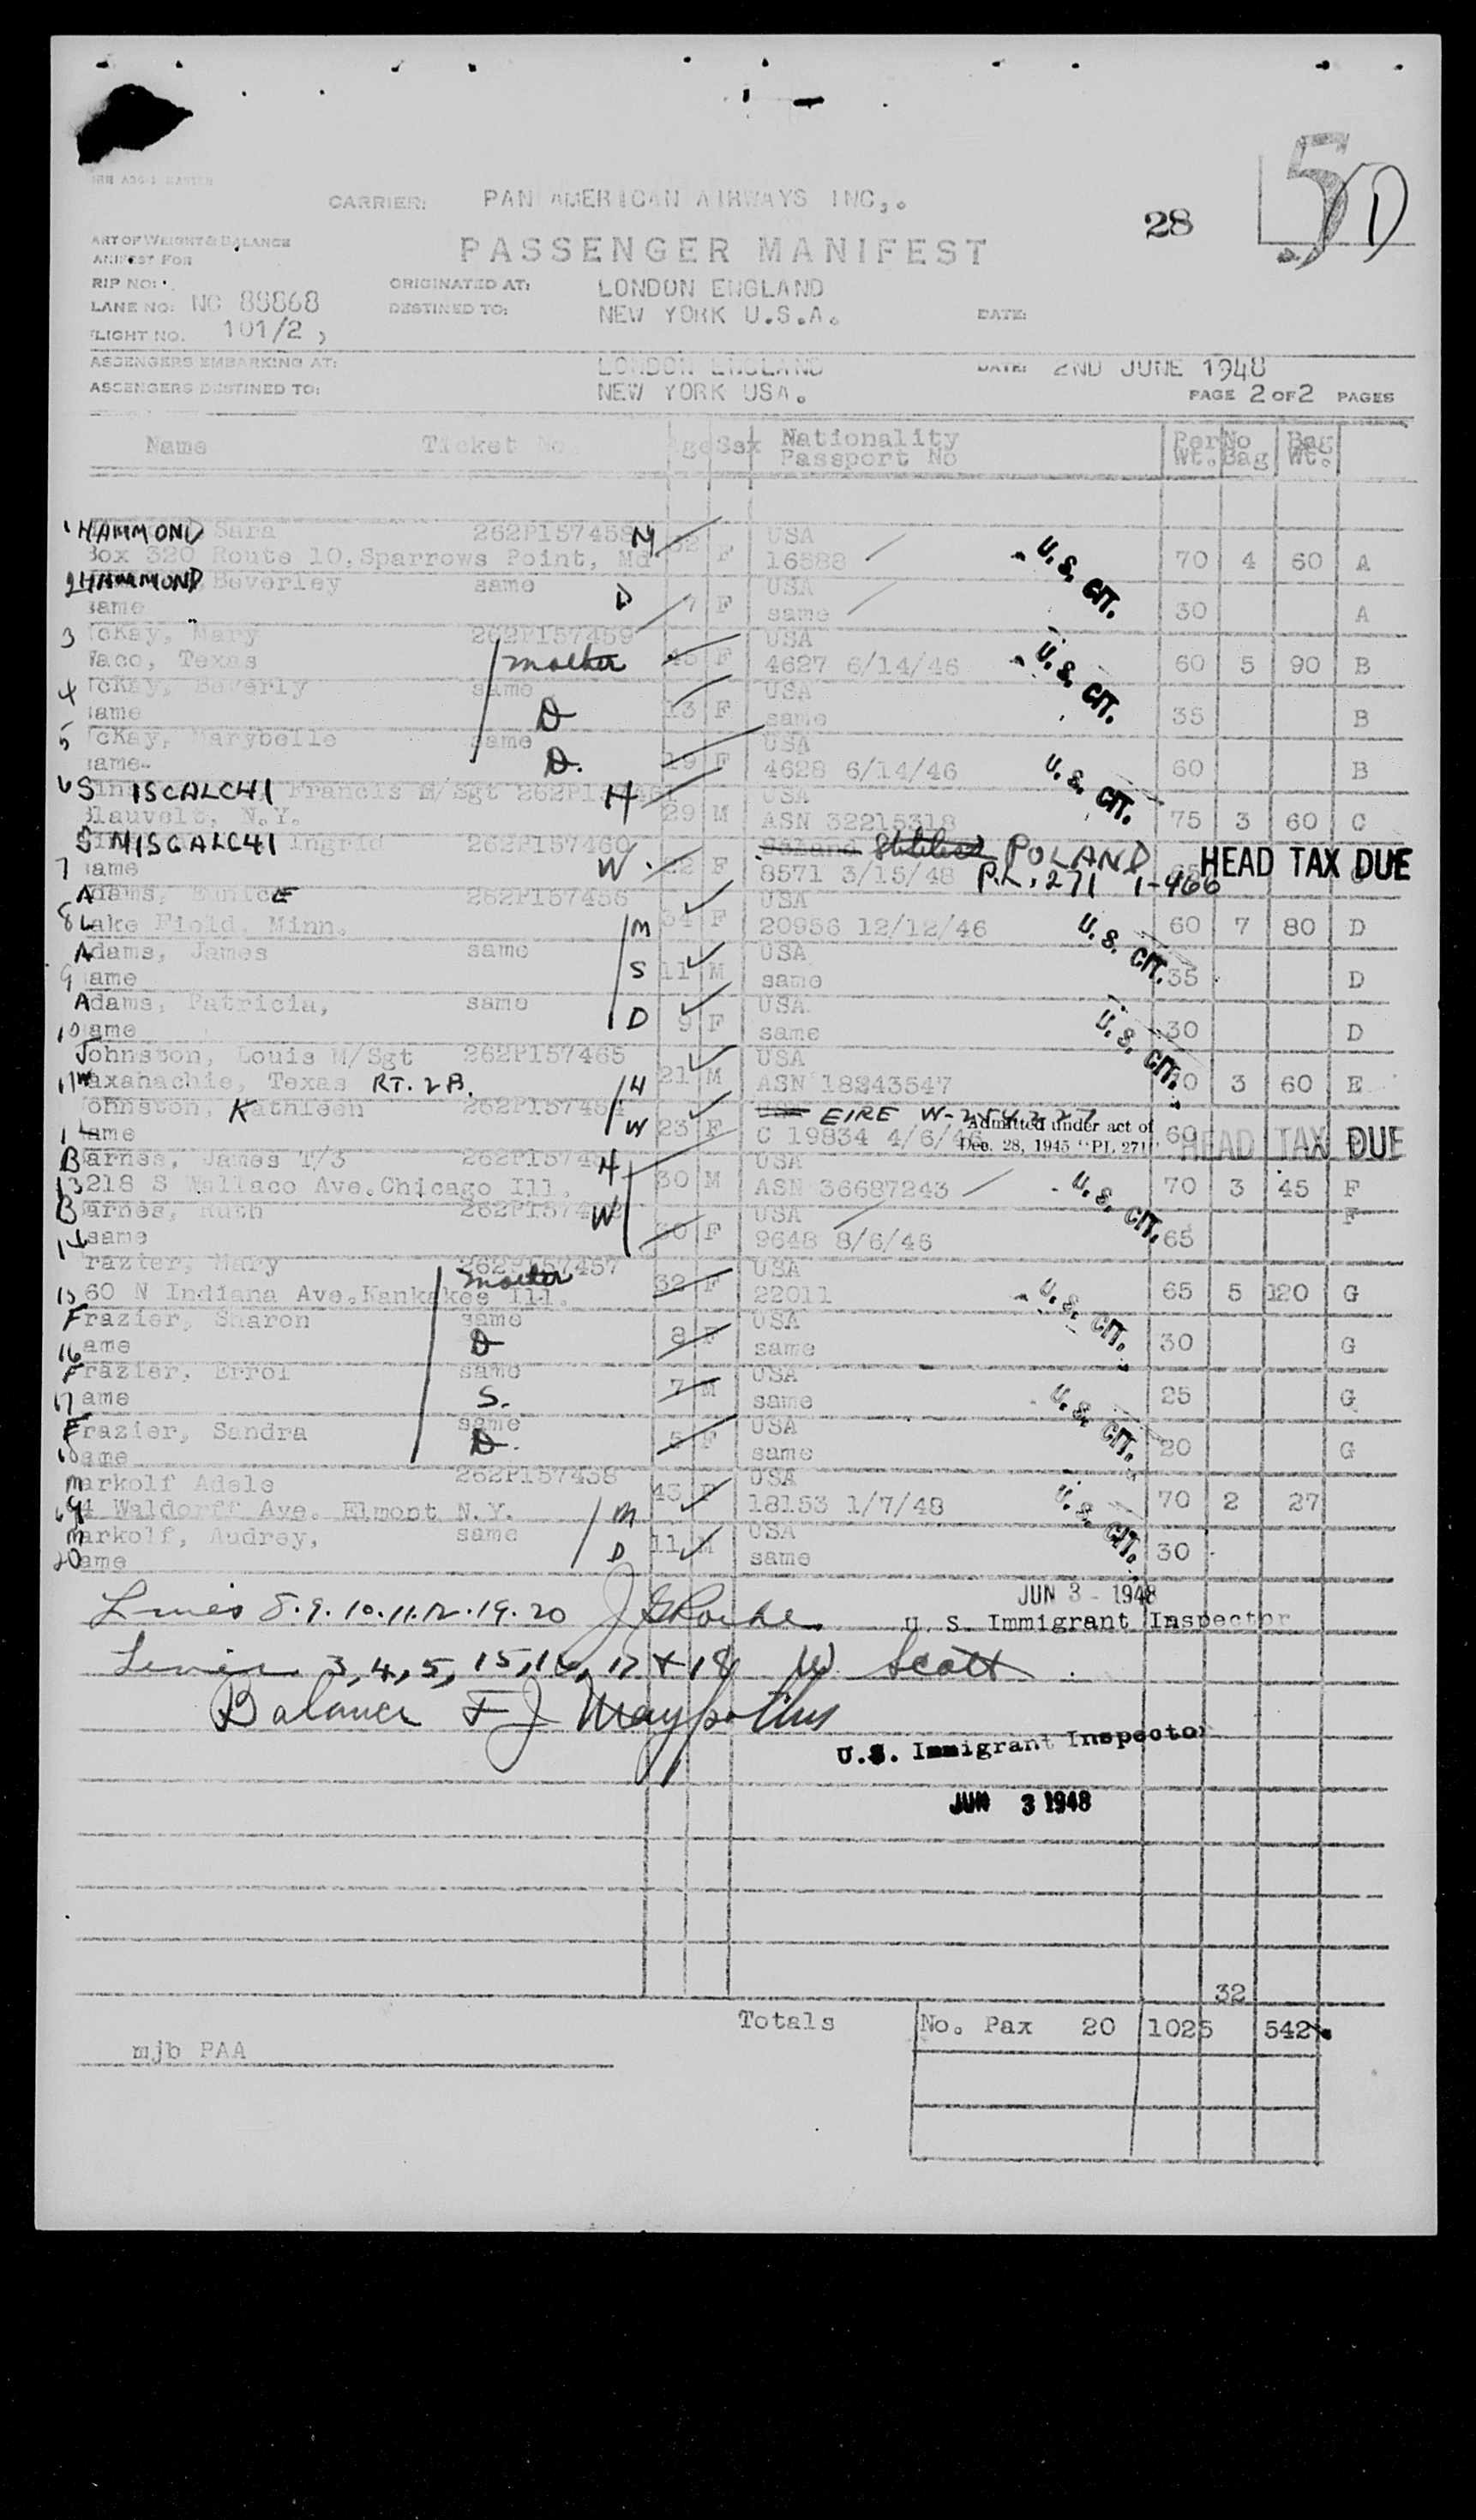 5 D
28
CARRIER: PAN AMERICAN AIRWAYS INC,.
ART OF WEIGHT & BALANCE
ANIFEST FOR
PASSENGER MANIFEST
RIP NO:
ORIGINATED AT: LONDON ENGLAND
LANE NO: NC 88868
DESTINED TO: NEW YORK U.S.A. DATE:
FLIGHT NO. 101/2
ASSENGERS EMBARKING AT: LONDON ENGLAND DATE: 2ND JUNE 1948
ASSENGERS DESTINED TO: NEW YORK USA. PAGE 2 OF 2 PAGES
Name Ticket No Age Sex Nationality Passport No Per Wt. No Bag Bag Wt.
1 HAMMOND Sara 262P157458 M F USA
Box 320 Route 10, Sparrows Point, Md 16588 U.S. CIT. 70 4 60 A
2 HAMMOND Beverley same D 7 F USA
same same 30 A
3 McKay, Mary 262P157459 USA
Waco, Texas mother 45 F 4627 6/14/46 U.S. CIT. 60 5 90 B
4 McKay, Beverly same USA
same D 13 F same 35 B
5 McKay, Marybelle same USA
same D. 19 F 4628 6/14/46 60 B
6 S ISCALCHI Francis M/Sgt H USA U.S. CIT.
Blauvelt, N.Y. 29 M ASN 32215318 75 3 60 C
SINISCALCHI Ingrid 262P157460 POLAND HEAD TAX DUE
7 same W 22 F 8571 3/15/48 P.L. 271 1-466
Adams, Eunice 262P157456 USA
8 Lake Field, Minn. M 34 F 20956 12/12/46 U.S. CIT. 60 7 80 D
Adams, James same USA
9 ame S 11 M same 35 D
Adams, Patricia, same USA
10 ame D 9 F same U.S. CIT. 30 D
Johnston, Louis M/Sgt 262P157465 USA
11 Waxahachie, Texas RT. 2 B. H 21 M ASN 18243547 3 60 E
Johnston, Kathleen EIRE
same W 23 F C 19834 4/6/46 Admitted under act of Dec. 28, 1945 "PL 271" 60 HEAD TAX DUE
Barnes, James T/3 H USA
13 218 S Wallace Ave. Chicago Ill. 30 M ASN 36687243 U.S. CIT. 70 3 45 F
Barnes, Ruth W USA F
14 same 30 F 9648 8/6/46 65
Frazier, Mary 262P157457 USA
15 60 N Indiana Ave. Kankakee Ill. mother 32 F 22011 U.S. CIT. 65 5 120 G
Frazier, Sharon same USA
16 ame D 8 F same 30 G
Frazier, Errol same USA
17 ame S. 7 M same U.S. CIT. 25 G
Frazier, Sandra same USA
18 ame D. 5 F same 20 G
Markolf Adele 262P157438 USA
19 4 Waldorff Ave. Elmont N.Y. M 45 F 18153 1/7/48 U.S. CIT. 70 2 27
Markolf, Audrey, same USA
20 ame D 11 M same 30
JUN 3 - 1948
Lines 8.9.10.11.12.19.20 U.S. Immigrant Inspector
Lines 3,4,5,15,16,17 & 18 W Scott
Balance F J
U.S. Immigrant Inspector
JUN 3 1948
32
Totals No. Pax 20 1025 542
mjb PAA